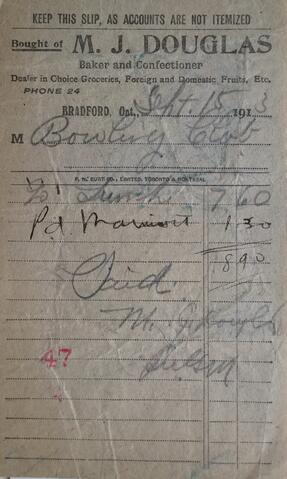 KEEP THIS SLIP, AS ACCOUNTS ARE NOT ITEMIZED
Bought of M. J. DOUGLAS
Baker and Confectioner
Dealer in Choice Groceries, Foreign and Domestic Fruits, Etc.
PHONE 24
BRADFORD, Ont., Sept 15 1913
M Bowling Club
F. N. BURT CO., LIMITED, TORONTO & MONTREAL
To 7.60
Pd 1.30
8.90
Paid
M. J. Douglas
47